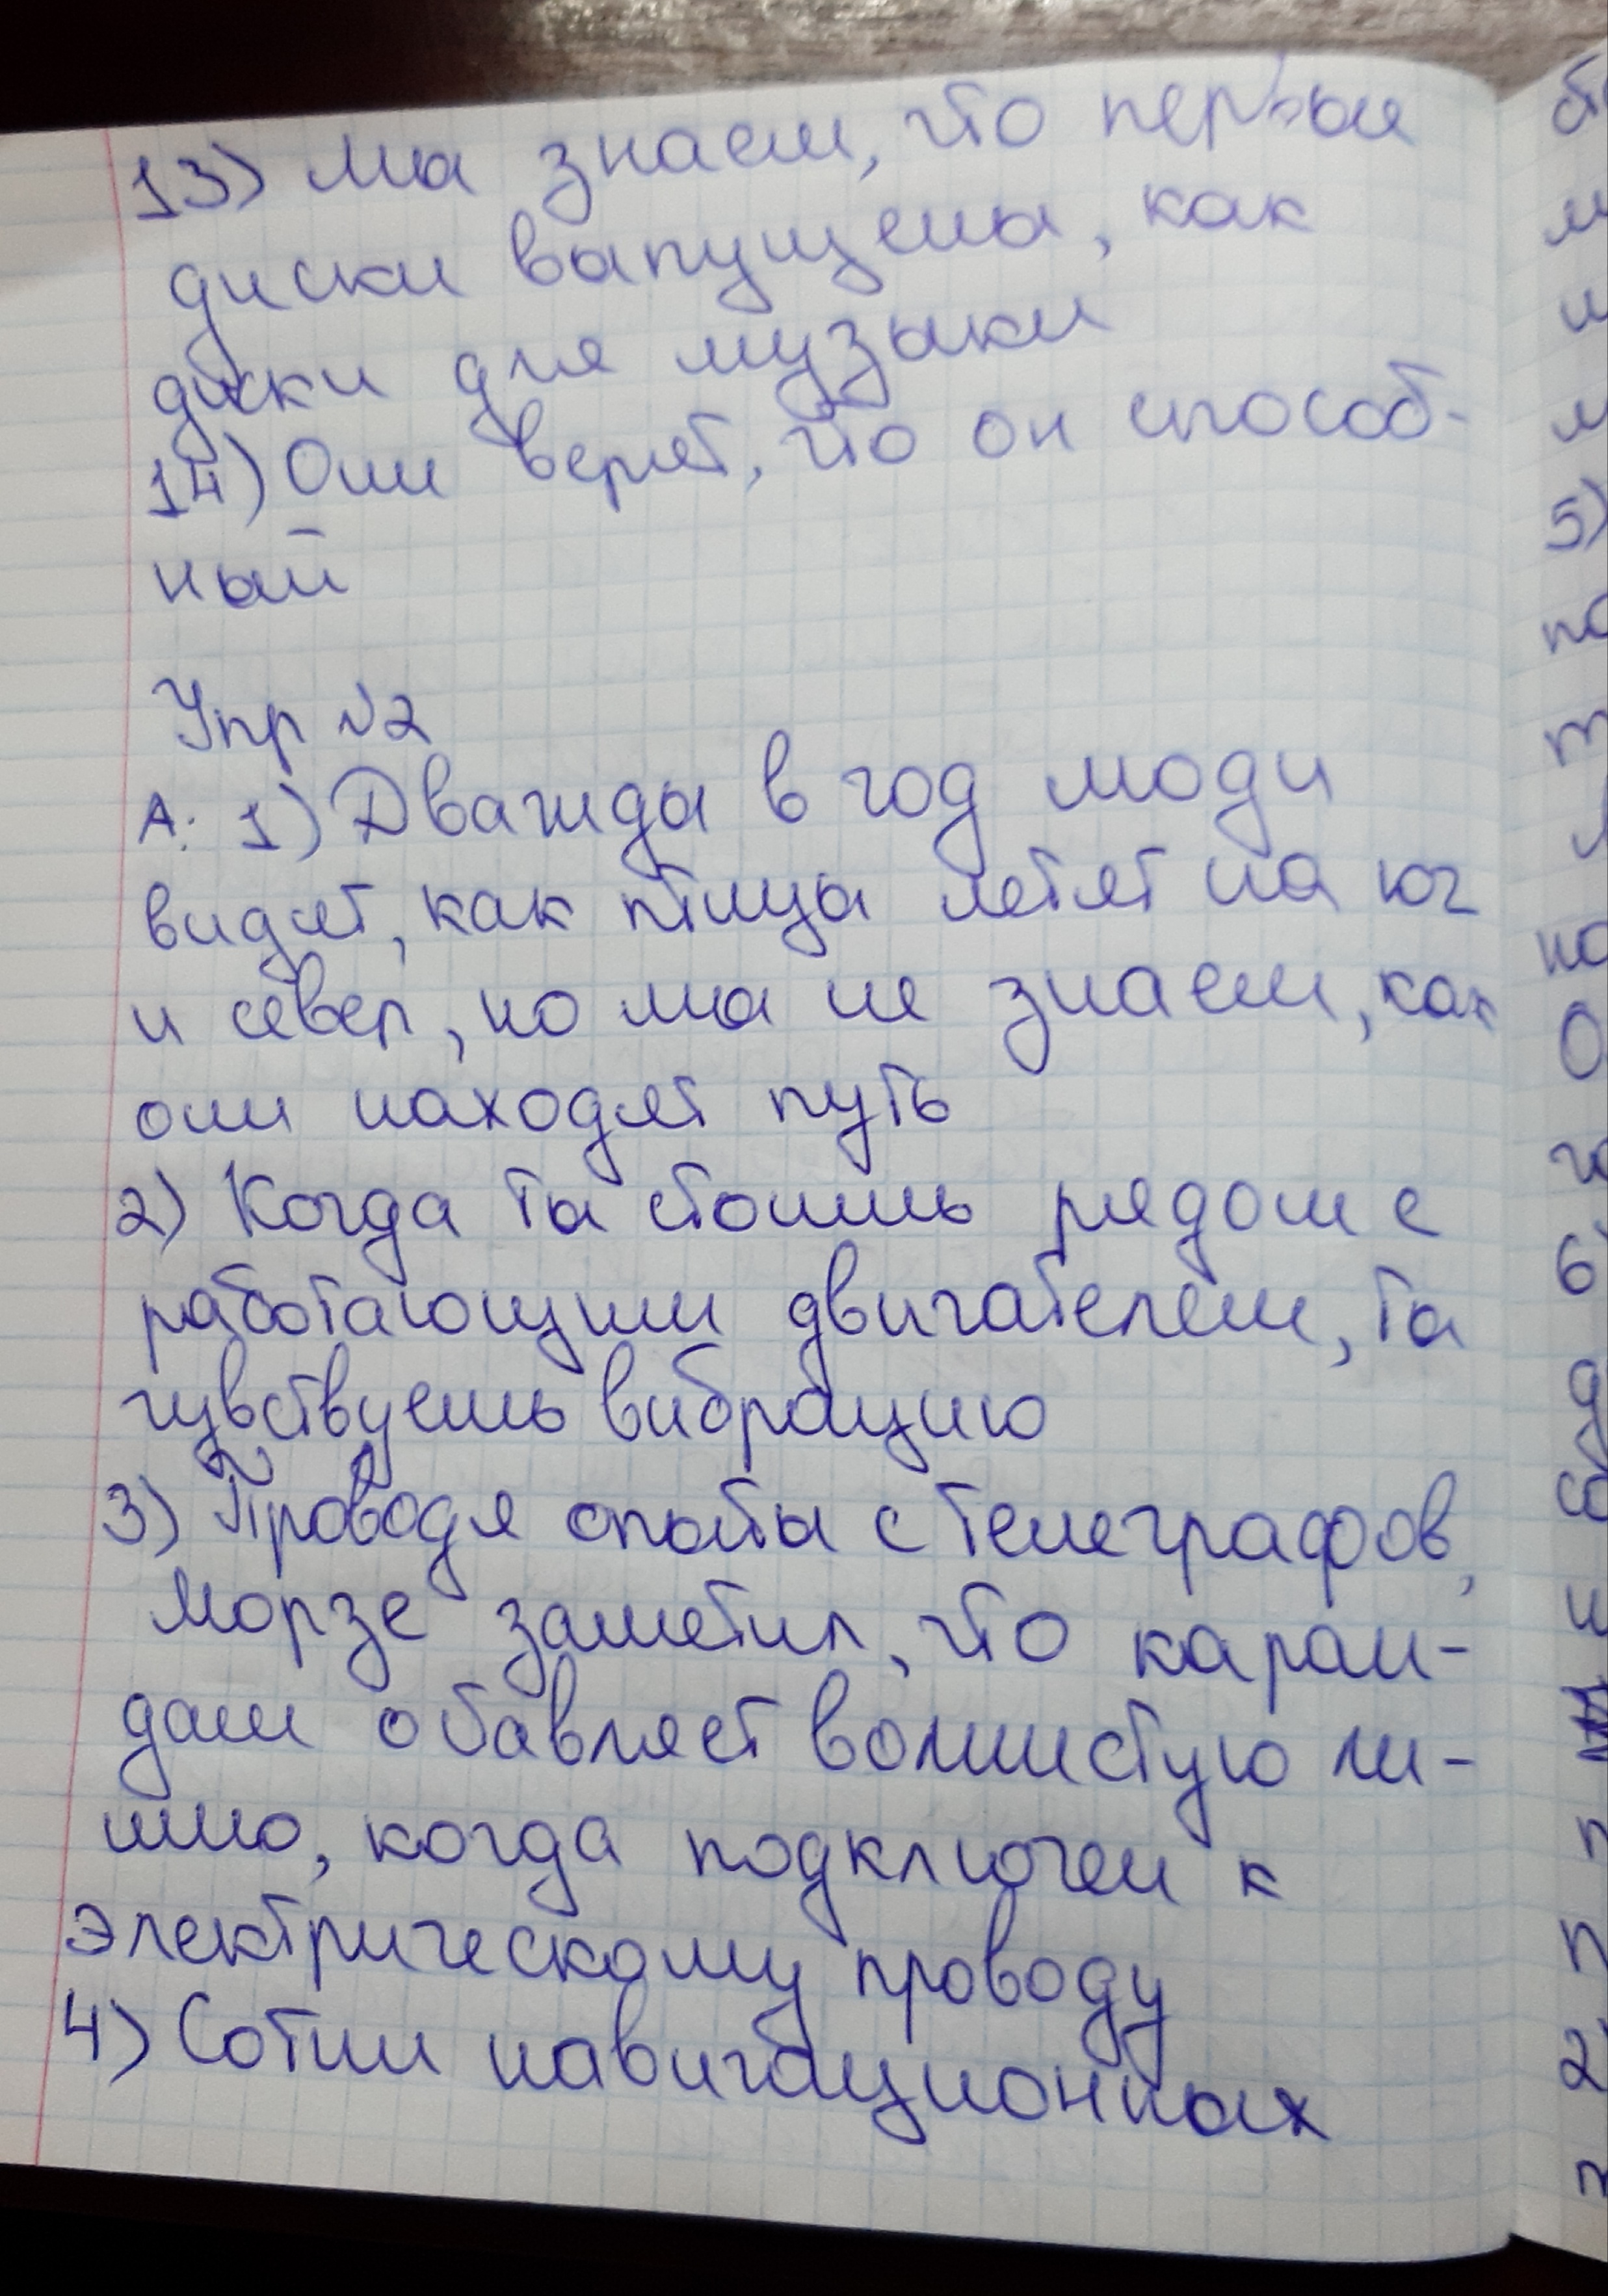 13) Мы знаем, что первые
диски выпущены, как
диски для музыки
14) Они верят, что он способ-
ный
Упр №2
А: 1) Дважды в год люди
видят, как птицы летят на юг
и север, но мы не знаем, как
они находят путь
2) Когда ты стоишь рядом с
работающим двигателем, ты
чувствуешь вибрацию
3) Проводя опыты с телеграфов,
Морзе заметил, что каран-
даш обавляет волнистую ли-
нию, когда подключен к
электрическому проводу
4) Сотни навигационных
5)
6)